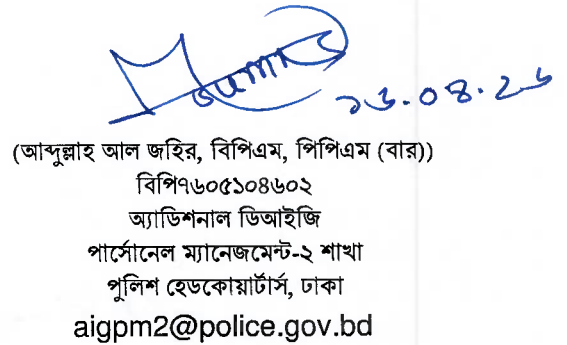 ১৬.০৪.২৬
(আব্দুল্লাহ আল জহির, বিপিএম, পিপিএম (বার))
বিপি৭৬০৫১০৪৬০২
অ্যাডিশনাল ডিআইজি
পার্সোনেল ম্যানেজমেন্ট-২ শাখা
পুলিশ হেডকোয়ার্টার্স, ঢাকা
aigpm2@police.gov.bd